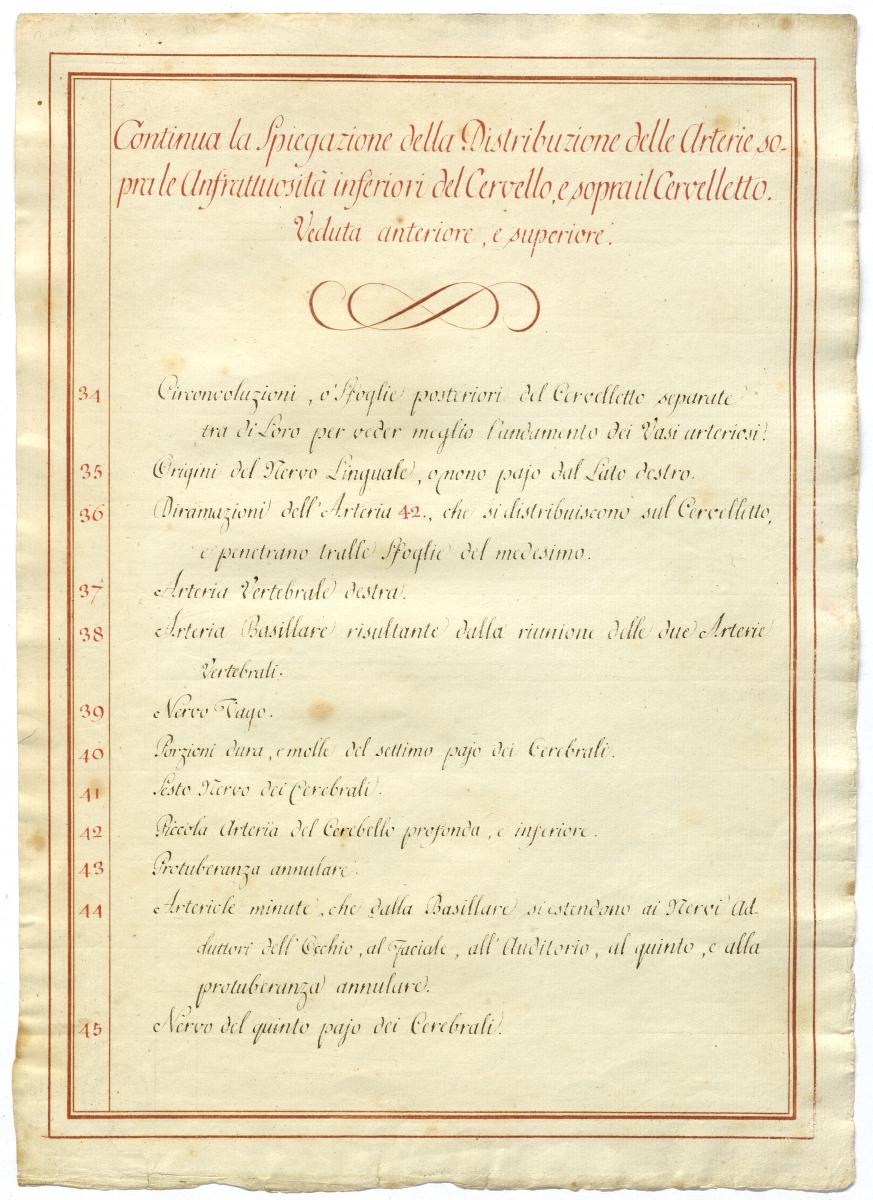 Continua la Spiegazione della Distribuzione delle Arterie so-
pra le Anfrattuosità inferiori del Cervello, e sopra il Cervelletto.
Veduta anteriore, e superiore.
34 Circonvoluzioni, o' Sfoglie posteriori del Cervelletto separate
tra di Loro per veder meglio l'andamento dei Vasi arteriosi.
35 Origini del Nervo Linguale, o nono pajo dal Lato destro.
36 Diramazioni dell'Arteria 42., che si distribuiscono sul Cervelletto,
e penetrano tralle Sfoglie del medesimo.
37 Arteria Vertebrale destra.
38 Arteria Basillare risultante dalla riunione delle due Arterie
Vertebrali.
39 Nervo Vago.
40 Porzioni dura, e molle del settimo pajo dei Cerebrali.
41 Sesto Nervo dei Cerebrali.
42 Piccola Arteria del Cerebello profonda, e inferiore.
43 Protuberanza annulare.
44 Arteriole minute, che dalla Basillare si estendono ai Nervi Ad-
duttori dell'Occhio, al Faciale, all'Auditorio, al quinto, e alla
protuberanza annulare.
45 Nervo del quinto pajo dei Cerebrali.